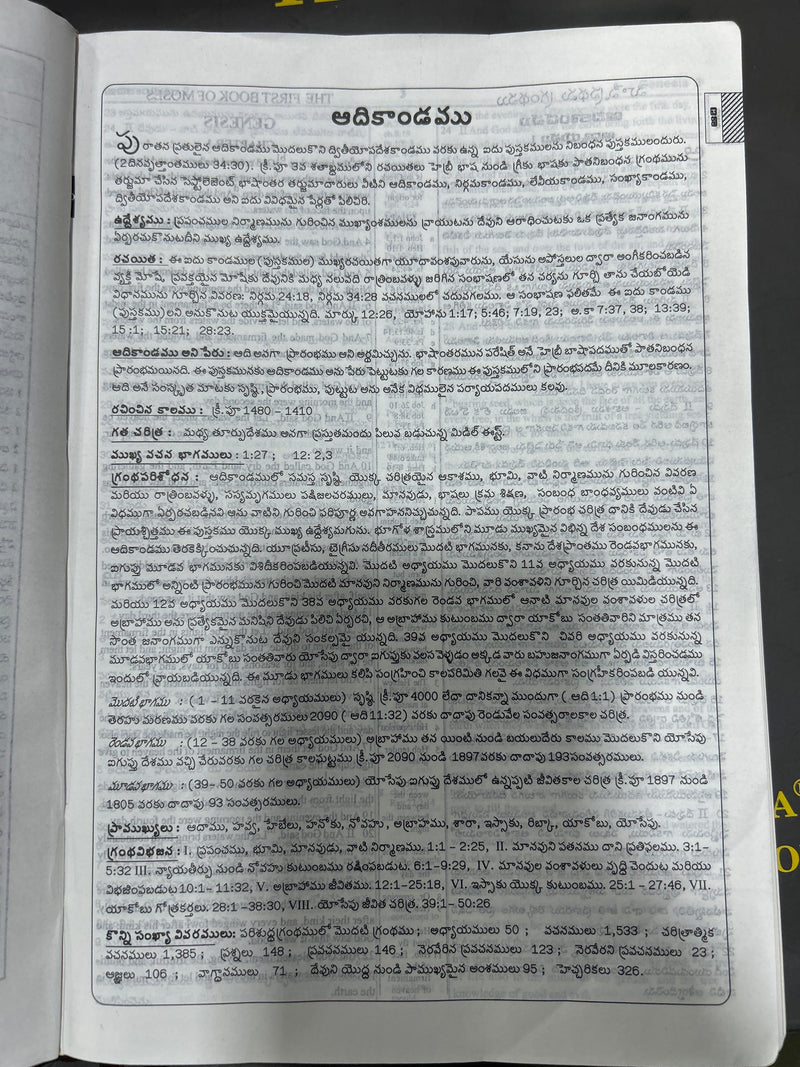 ఆదికాండము
పురాతన ప్రతులైన ఆదికాండము మొదలుకొని ద్వితీయోపదేశకాండము వరకు ఉన్న ఐదు పుస్తకములను నిబంధన పుస్తకములందురు.
(2దినవృత్తాంతములు 34:30). క్రీ.పూ 3వ శతాబ్దములోని రచయితలు హెబ్రీ భాష నుండి గ్రీకు భాషకు పాతనిబంధన గ్రంథమును
తర్జుమా చేసిన సెప్టోలెజెంట్ భాషాంతర తర్జుమాదారులు వీటిని ఆదికాండము, నిర్గమకాండము, లేవీయకాండము, సంఖ్యాకాండము,
ద్వితీయోపదేశకాండము అని ఐదు వివిధమైన పేర్లతో పిలిచిరి.
ఉద్దేశ్యము : ప్రపంచముల నిర్మాణమును గురించిన ముఖ్యాంశములను వ్రాయుటను దేవుని ఆరాధించుటకు ఒక ప్రత్యేక జనాంగమును
ఏర్పరచుకొనుటదీని ముఖ్య ఉద్దేశ్యము.
రచయిత : ఈ ఐదు కాండముల (పుస్తకముల) ముఖ్యరచయితగా యూదావంశపువారును, యేసును అపోస్తలుల ద్వారా అంగీకరించబడిన
వ్యక్తి మోషే, ప్రవక్తయైన మోషేకు దేవునికి మధ్య నలువది రాత్రింబవళ్ళు జరిగిన సంభాషణలో తన చర్యను గూర్చి తాను చేయబోయెడి
విధానమును గూర్చిన వివరణ: నిర్గమ 24:18, నిర్గమ 34:28 వచనములలో చదువగలము. ఆ సంభాషణ ఫలితమే ఈ ఐదు కాండము
(పుస్తకము)లని అనుకొనుట యుక్తమైయున్నది. మార్కు 12:26, యోహాను 1:17; 5:46; 7:19, 23; అ.కా 7:37, 38; 13:39;
15:1; 15:21; 28:23.
ఆదికాండము అని పేరు : ఆది అనగా ప్రారంభము అని అర్థమిచ్చును. భాషాంతరమున పరేషిత్ అనే హెబ్రీ బాషాపదముతో పాతనిబంధన
ప్రారంభమయినది. ఈ పుస్తకమునకు ఆదికాండము అను పేరు పెట్టుటకు గల కారణము ఈ పుస్తకములోని ప్రారంభపదమే దీనికి మూలకారణం.
ఆది అనే సంస్కృత మాటకు సృష్టి, ప్రారంభము, పుట్టుట అను అనేక విధములైన పర్యాయపదములు కలవు.
రచించిన కాలము : క్రీ.పూ 1480 – 1410
గత చరిత్ర : మధ్య తూర్పుదేశము అనగా ప్రస్తుతమందు పిలువ బడుచున్న మిడిల్ ఈస్ట్.
ముఖ్య వచన భాగములు : 1:27 ; 12: 2,3
గ్రంథపరిశోధన : ఆదికాండములో సమస్త సృష్టి యొక్క చరిత్రయైన ఆకాశము, భూమి, వాటి నిర్మాణమును గురించిన వివరణ
మరియు రాత్రింబవళ్ళు, సస్యమృగములు పక్షిజలచరములు, మానవుడు, భాషలు క్రమ శిక్షణ, సంబంధ బాంధవ్యములు వంటివి ఏ
విధముగా ఏర్పరచబడినవి అను వాటిని గురించి పరిపూర్ణ అవగాహననిచ్చుచున్నది. పాపము యొక్క ప్రారంభ చరిత్ర దానికి దేవుడు చేసిన
ప్రాయశ్చిత్తము ఈ పుస్తకము యొక్క ముఖ్య ఉద్దేశ్యమగును. భూగోళ శాస్త్రములోని మూడు ముఖ్యమైన విభిన్న దేశ సంబంధములను ఈ
ఆదికాండము తెరకెక్కించుచున్నది. యూప్రటీసు, టైగ్రీసు నదీతీరములు మొదటి భాగమునకు, కనాను దేశప్రాంతము రెండవభాగమునకు,
ఐగుప్తు మూడవ భాగమునకు విశిదీకరింపబడియున్నవి. మొదటి అధ్యాయము మొదలుకొని 11వ అధ్యాయము వరకునున్న మొదటి
భాగములో అన్నింటి ప్రారంభమును గురించి మొదటి మానవుని నిర్మాణమును గురించి, వారి వంశావళిని గూర్చిన చరిత్ర యిమిడియున్నది.
మరియు 12వ అధ్యాయము మొదలుకొని 38వ అధ్యాయము వరకుగల రెండవ భాగములో ఆనాటి మానవుల వంశావళుల చరిత్రలో
అబ్రాహాము అను ప్రత్యేకమైన మనిషిని దేవుడు పిలిచి ఏర్పరచి, ఆ అబ్రాహాము కుటుంబము ద్వారా యాకోబు సంతతివారిని మాత్రము తన
సొంత జనాంగముగా ఎన్నుకొనుట దేవుని సంకల్పమై యున్నది. 39వ అధ్యాయము మొదలుకొని చివరి అధ్యాయము వరకునున్న
మూడవభాగములో యాకోబు సంతతివారు యోసేపు ద్వారా ఐగుప్తుకు వలస వెళ్ళడం అక్కడ వారు బహుజనాంగముగా ఏర్పడి విస్తరించడము
ఇందులో వ్రాయబడియున్నది. ఈ మూడు భాగములు కలిపి సంగ్రహించి కాలపరిమితి గలవై ఈ విధముగా సంగ్రహీకరింపబడి యున్నవి.
మొదటి భాగము : ( 1 – 11 వరకైన అధ్యాయములు) సృష్టి క్రీ.పూ 4000 లేదా దానికన్నా ముందుగా ( ఆది 1:1) ప్రారంభము నుండి
తెరహు మరణము వరకు గల సంవత్సరములు 2090 ( ఆది 11:32) వరకు దాదాపు రెండువేల సంవత్సరాలకాల చరిత్ర.
రెండవ భాగము : (12 – 38 వరకు గల అధ్యాయములు) అబ్రాహాము తన యింటి నుండి బయలుదేరు కాలము మొదలుకొని యోసేపు
ఐగుప్తు దేశము వచ్చి చేరువరకు గల చరిత్ర కాలఘట్టము క్రీ.పూ 2090 నుండి 1897వరకు దాదాపు 193సంవత్సరములు.
మూడవ భాగము : (39– 50 వరకు గల అధ్యాయములు) యోసేపు ఐగుప్తు దేశములో ఉన్నప్పటి జీవితకాల చరిత్ర క్రీ.పూ 1897 నుండి
1805 వరకు దాదాపు 93 సంవత్సరములు.
ప్రాముఖ్యులు : ఆదాము, హవ్వ, హేబేలు, హనోకు, నోవహు, అబ్రాహాము, శారా, ఇస్సాకు, రిబ్కా, యాకోబు, యోసేపు.
గ్రంథవిభజన : I. ప్రపంచము, భూమి, మానవుడు, వాటి నిర్మాణము. 1:1 – 2:25, II. మానవుని పతనము దాని ప్రతిఫలము. 3:1–
5:32 III. న్యాయతీర్పు నుండి నోవహు కుటుంబము రక్షింపబడుట. 6:1–9:29, IV. మానవుల వంశావళులు వృద్ధి చెందుట మరియు
విభజింపబడుట 10:1– 11:32, V. అబ్రాహాము జీవితము. 12:1–25:18, VI. ఇస్సాకు యొక్క కుటుంబము. 25:1 – 27:46, VII.
యాకోబు గోత్రకర్తలు. 28:1 –38:30, VIII. యోసేపు జీవిత చరిత్ర. 39:1– 50:26
కొన్ని సంఖ్యా వివరములు: పరిశుద్ధగ్రంథములో మొదటి గ్రంథము ; అధ్యాయములు 50 ; వచనములు 1,533 ; చరిత్రాత్మిక
వచనములు 1,385 ; ప్రశ్నలు 148 ; ప్రవచనములు 146 ; నెరవేరిన ప్రవచనములు 123 ; నెరవేరని ప్రవచనములు 23 ;
ఆజ్ఞలు 106 ; వాగ్దానములు 71 ; దేవుని యొద్ద నుండి ప్రాముఖ్యమైన అంశములు 95 ; హెచ్చరికలు 326.